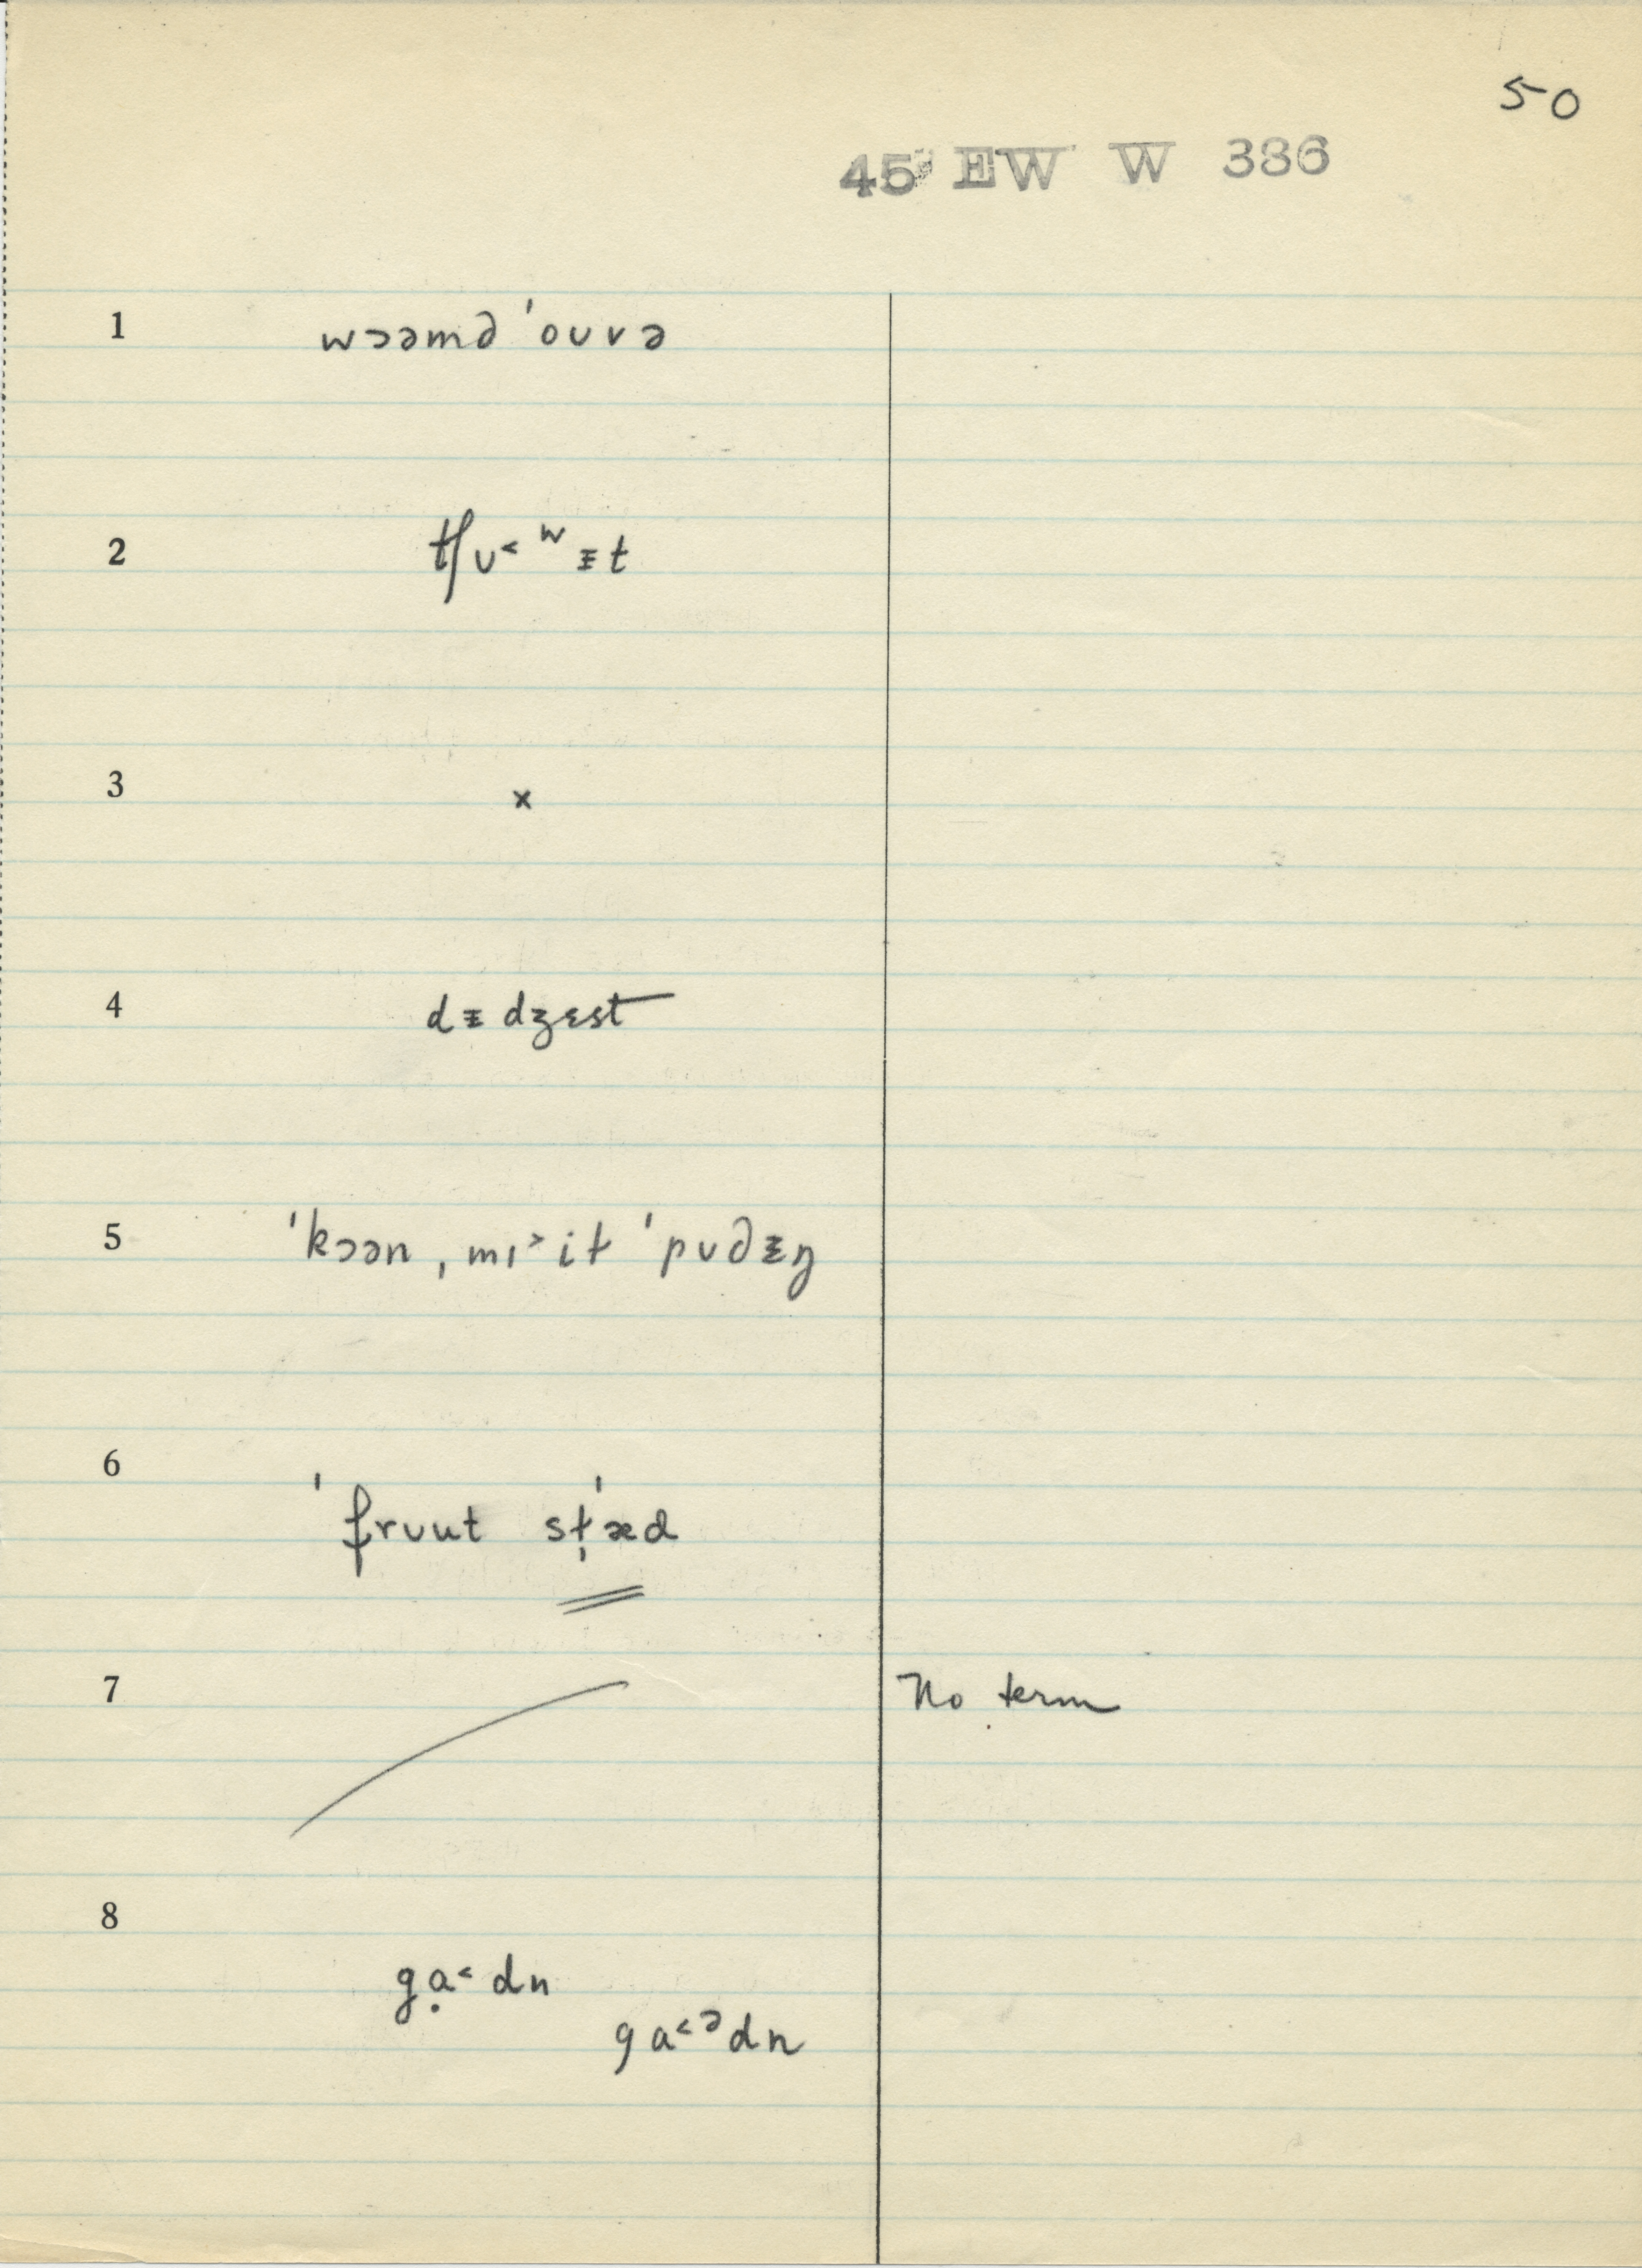 50
45 EW W 386
1 wɔəmd ˈouvə
2 tʃʊ˂ ʷɪ̵t
3 x
4 dɪ̵dʒɛst
5 ˈkɔən ˌmɪ˃it ˈpʊdɪ̵ŋ
6 ˈfrʊut sṭˈæd
7 No term
8 gạ˂dn
ga˂ᵊdn